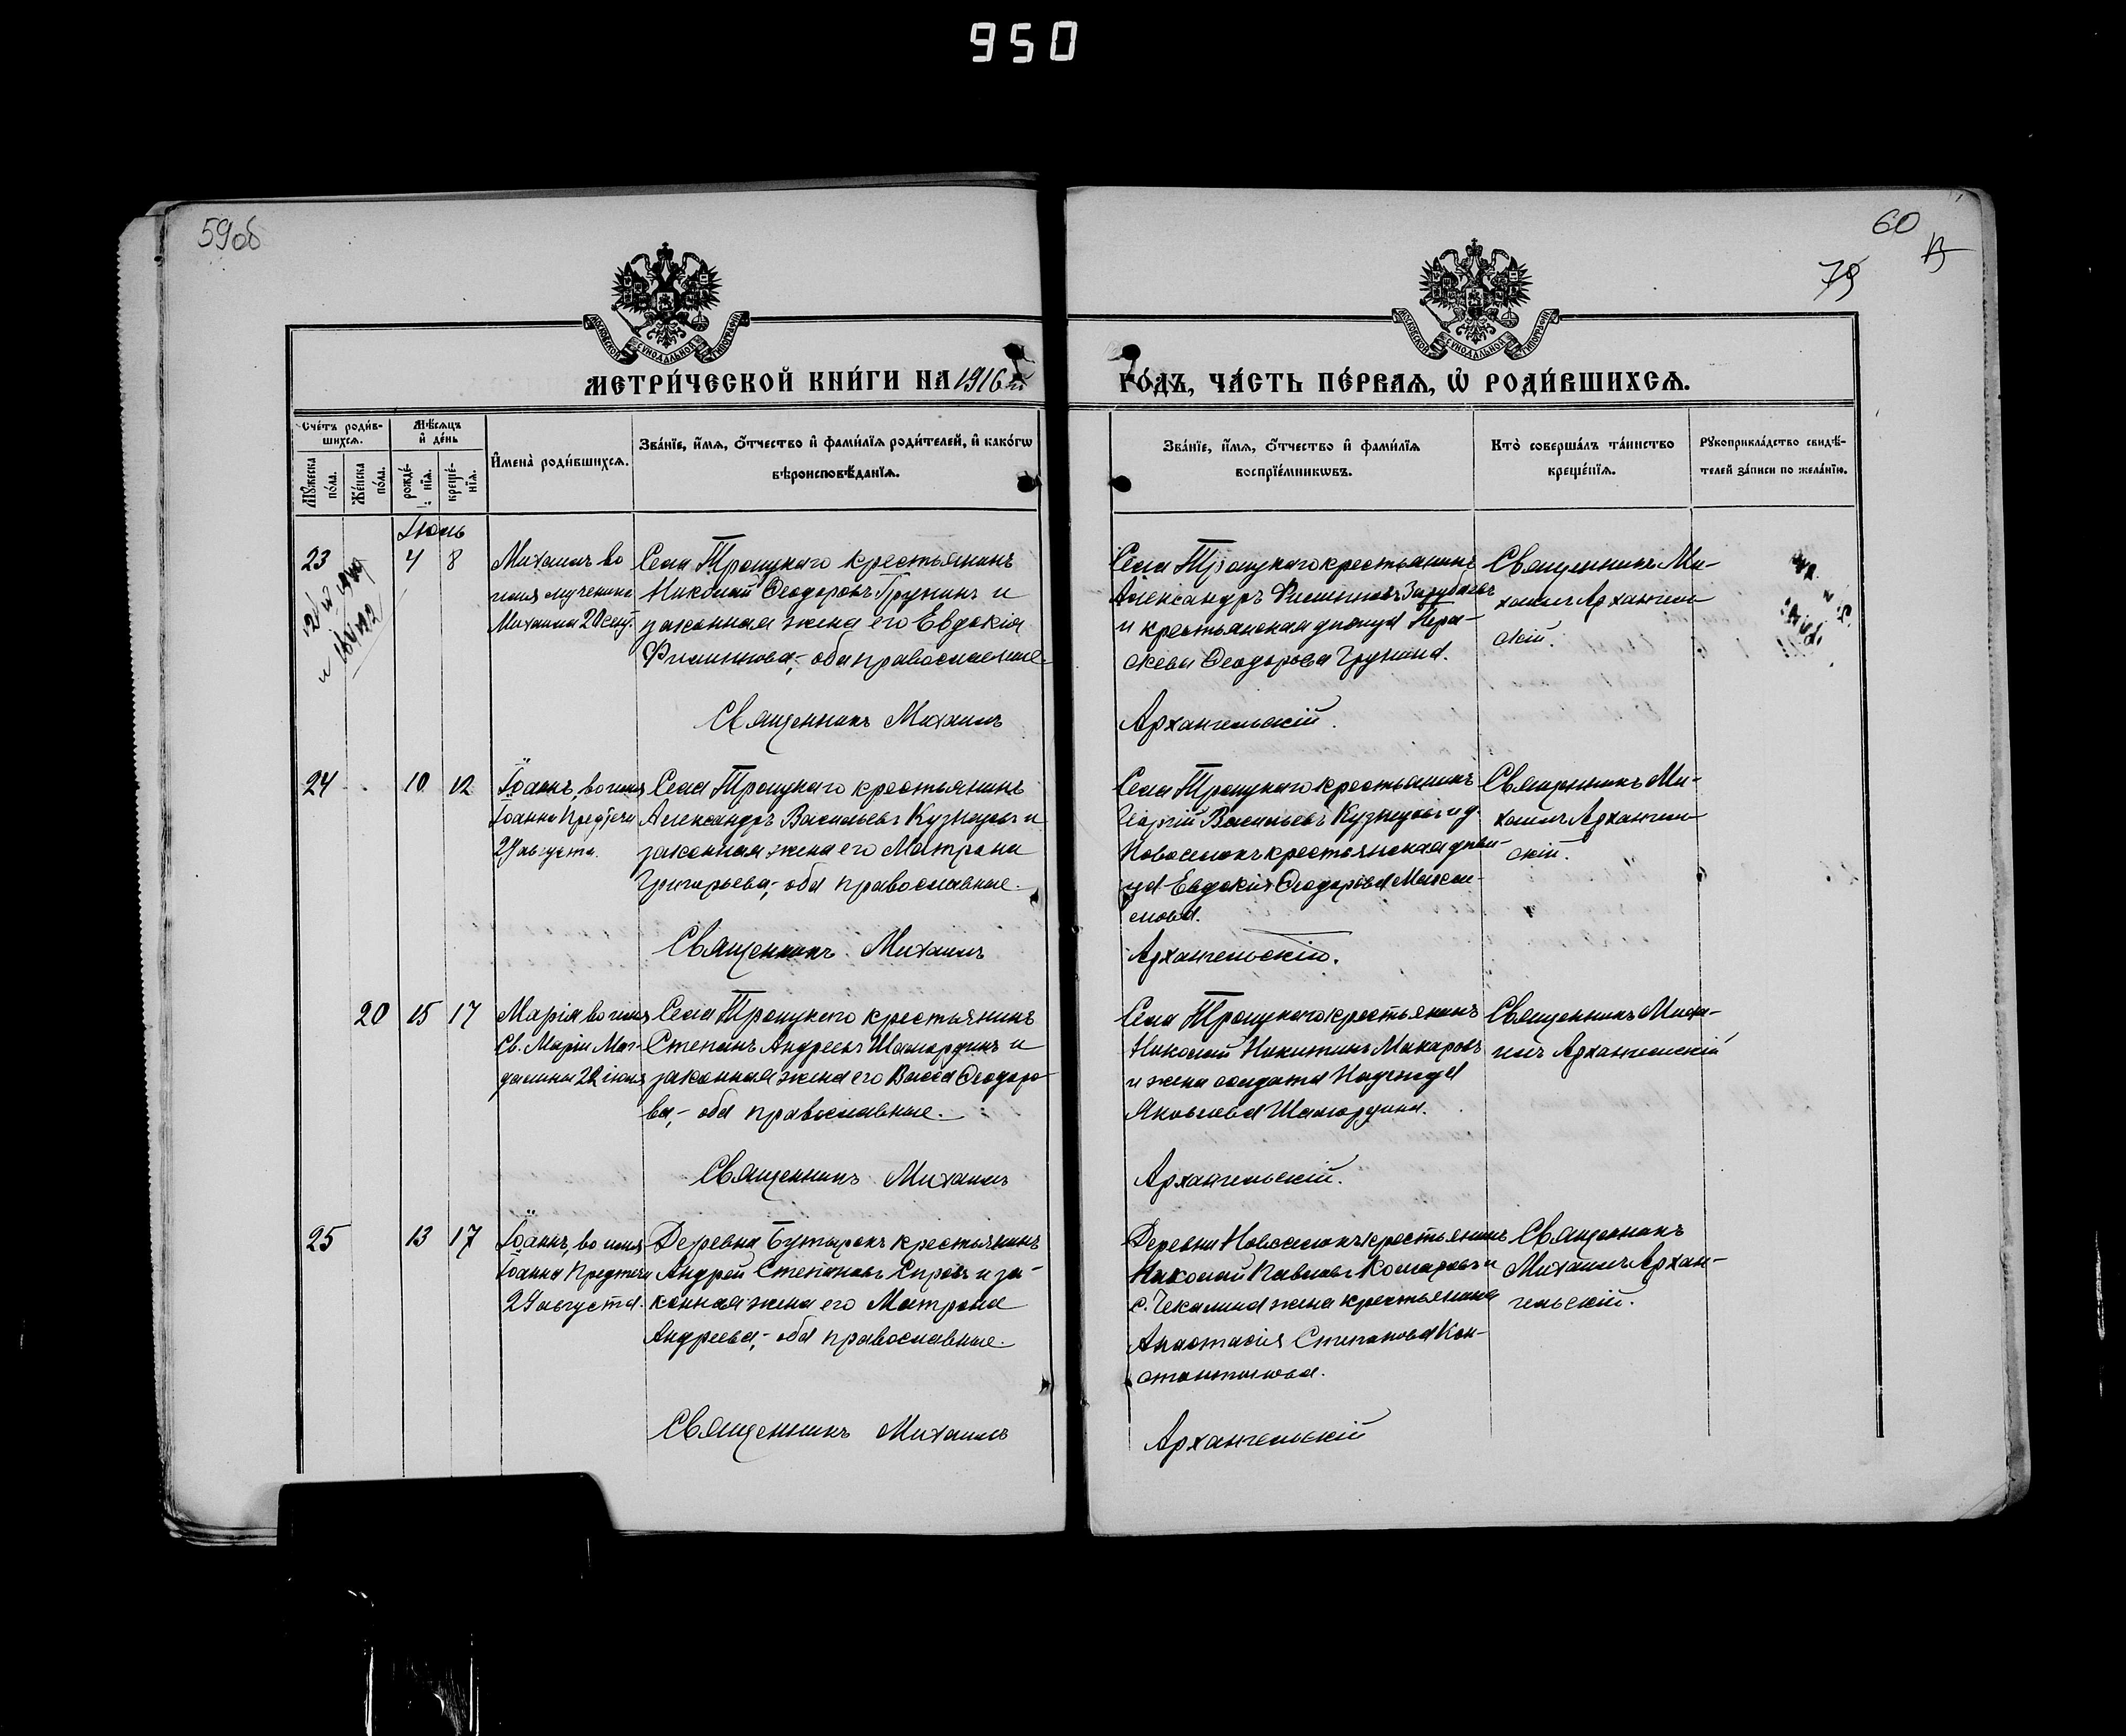 950
59об
60
79
МЕТРИ́ЧЕСКОЙ КНИ́ГИ НА 1916й
ГО́ДЪ, ЧА́СТЬ ПЕ́РВАѦ, Ѡ҆ РОДИ́ВШИХСѦ.
Сче́тъ роди́в-
шихсѧ.
Мѣ́сѧцъ
и҆ де́нь
Мꙋ́жеска
по́ла.
Же́нска
по́ла.
рожде́-
нїѧ.
креще́-
нїѧ.
И҆мена̀ роди́вшихсѧ.
Зва́нїе, и҆́мѧ, ѻ҆́тчество и҆ фами́лїѧ роди́телей, и҆ како́гѡ
вѣроисповѣ́данїѧ.
Зва́нїе, и҆́мѧ, ѻ҆́тчество и҆ фами́лїѧ
воспрїе́мникѡвъ.
Кто̀ соверша́лъ та́инство
креще́нїѧ.
Рꙋкоприкла́дство свидѣ́-
телей за́писи по жела́нїю.
Іюль
23 4 8
Михаилъ во
имя мученика
Михаила 20 сент.
Села Троицкаго крестьянинъ
Николай Ѳеодоровъ Грунинъ и
законная жена его Евдокія
Филиппова,- оба православные.
Села Троицкаго крестьянинъ
Александръ Филипповъ Зарубаевъ
и крестьянская дѣвица Пара-
скева Ѳеодорова Грунина.
Священникъ Ми-
хаилъ Архангель-
скій.
Священникъ Михаилъ
Архангельскій.
24 10 12
Іоаннъ, во имя
Іоанна Предтечи
29 августа.
Села Троицкаго крестьянинъ
Александръ Васильевъ Кузнецовъ и
законная жена его Матрона
Григорьева,- оба православные.
Села Троицкаго крестьянинъ
Георгій Васильевъ Кузнецовъ и д.
Новоселокъ крестьянская дѣви-
ца Евдокія Ѳеодорова Макси-
мова.
Священникъ Ми-
хаилъ Архангель-
скій.
Священникъ Михаилъ
Архангельскій.
20 15 17
Марія во имя
Св. Маріи Маг-
далины 22 іюля
Села Троицкаго крестьянинъ
Степанъ Андреевъ Шамардинъ и
законная жена его Васса Ѳеодоро-
ва,- оба православные.
Села Троицкаго крестьянинъ
Николай Никитинъ Макаровъ
и жена солдата Надежда
Яковлева Шамардина.
Священникъ Миха-
илъ Архангельскій
Священникъ Михаилъ
Архангельскій.
25 13 17
Іоаннъ, во имя
Іоанна Предтечи
29 августа.
Деревни Бутырокъ крестьянинъ
Андрей Степановъ Спровъ и за-
конная жена его Матрона
Андреева,- оба православные.
Деревни Новоселокъ крестьянинъ
Николай Павловъ Комаровъ и
с. Чекалина жена крестьянина
Анастасія Степанова Кон-
стантинова.
Священникъ
Михаилъ Архан-
гельскій.
Священникъ Михаилъ
Архангельскій